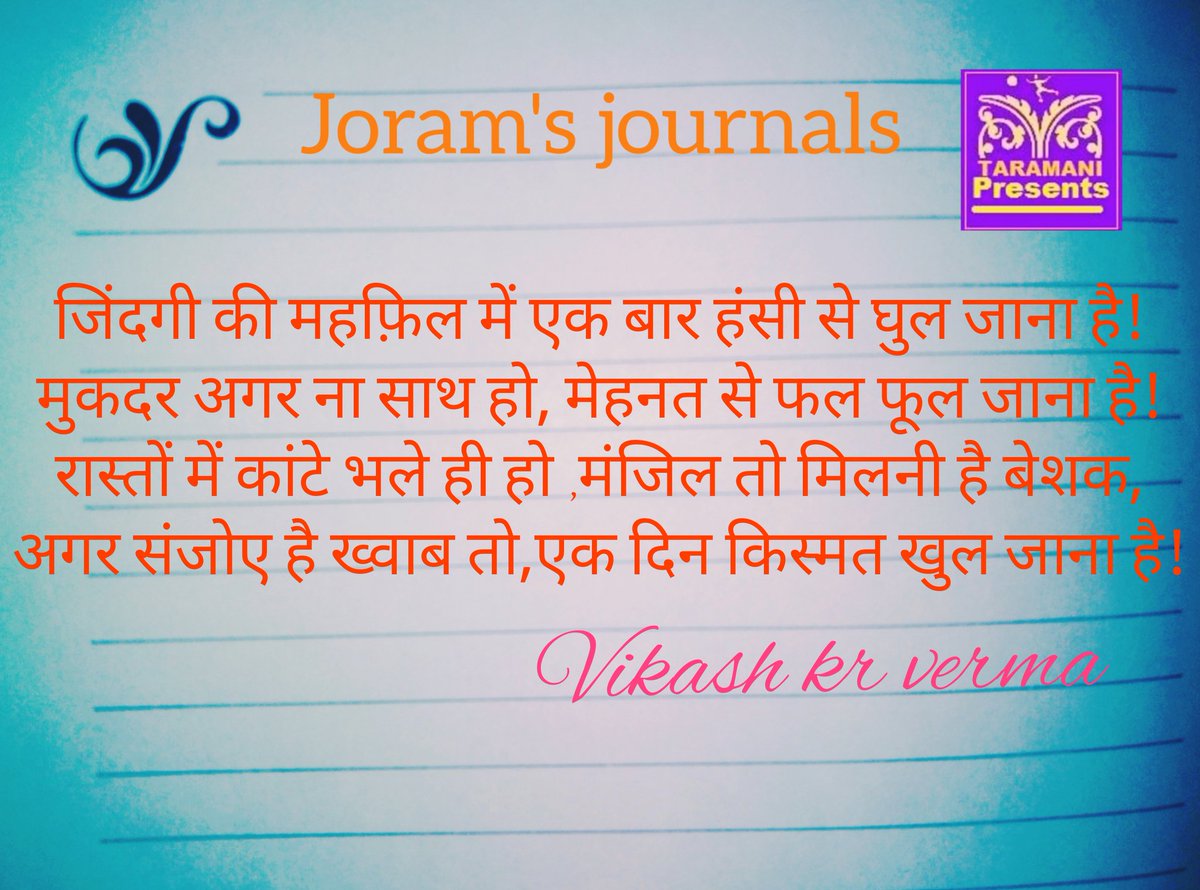 Joram's journals
TARAMANI
Presents
जिंदगी की महफ़िल में एक बार हंसी से घुल जाना है!
मुकदर अगर ना साथ हो, मेहनत से फल फूल जाना है!
रास्तों में कांटे भले ही हो ,मंजिल तो मिलनी है बेशक,
अगर संजोए है ख्वाब तो,एक दिन किस्मत खुल जाना है!
Vikash kr verma